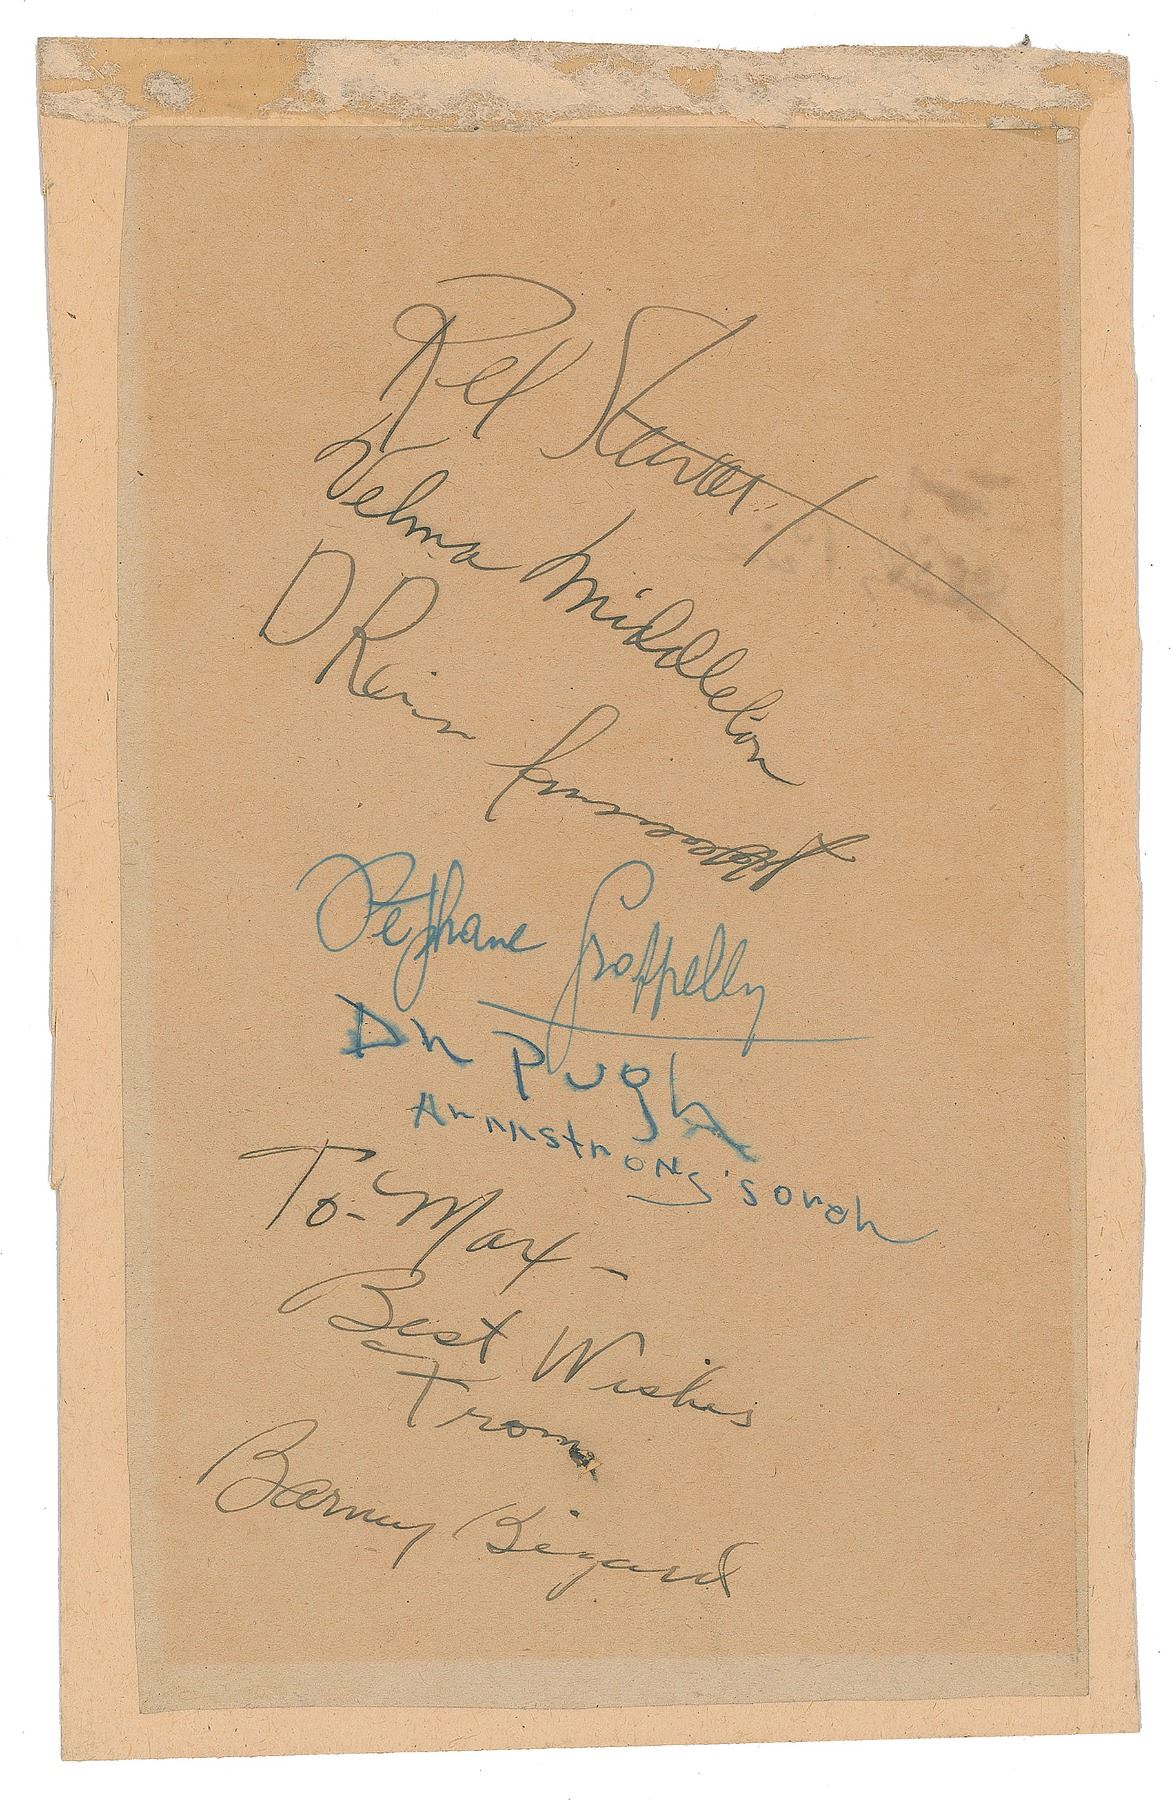 Rex Stewart
Velma Middleton
Stephane Grappelly
Dr Pugh
Armstrong's
To - Max -
Best Wishes
From
Barney Bigard